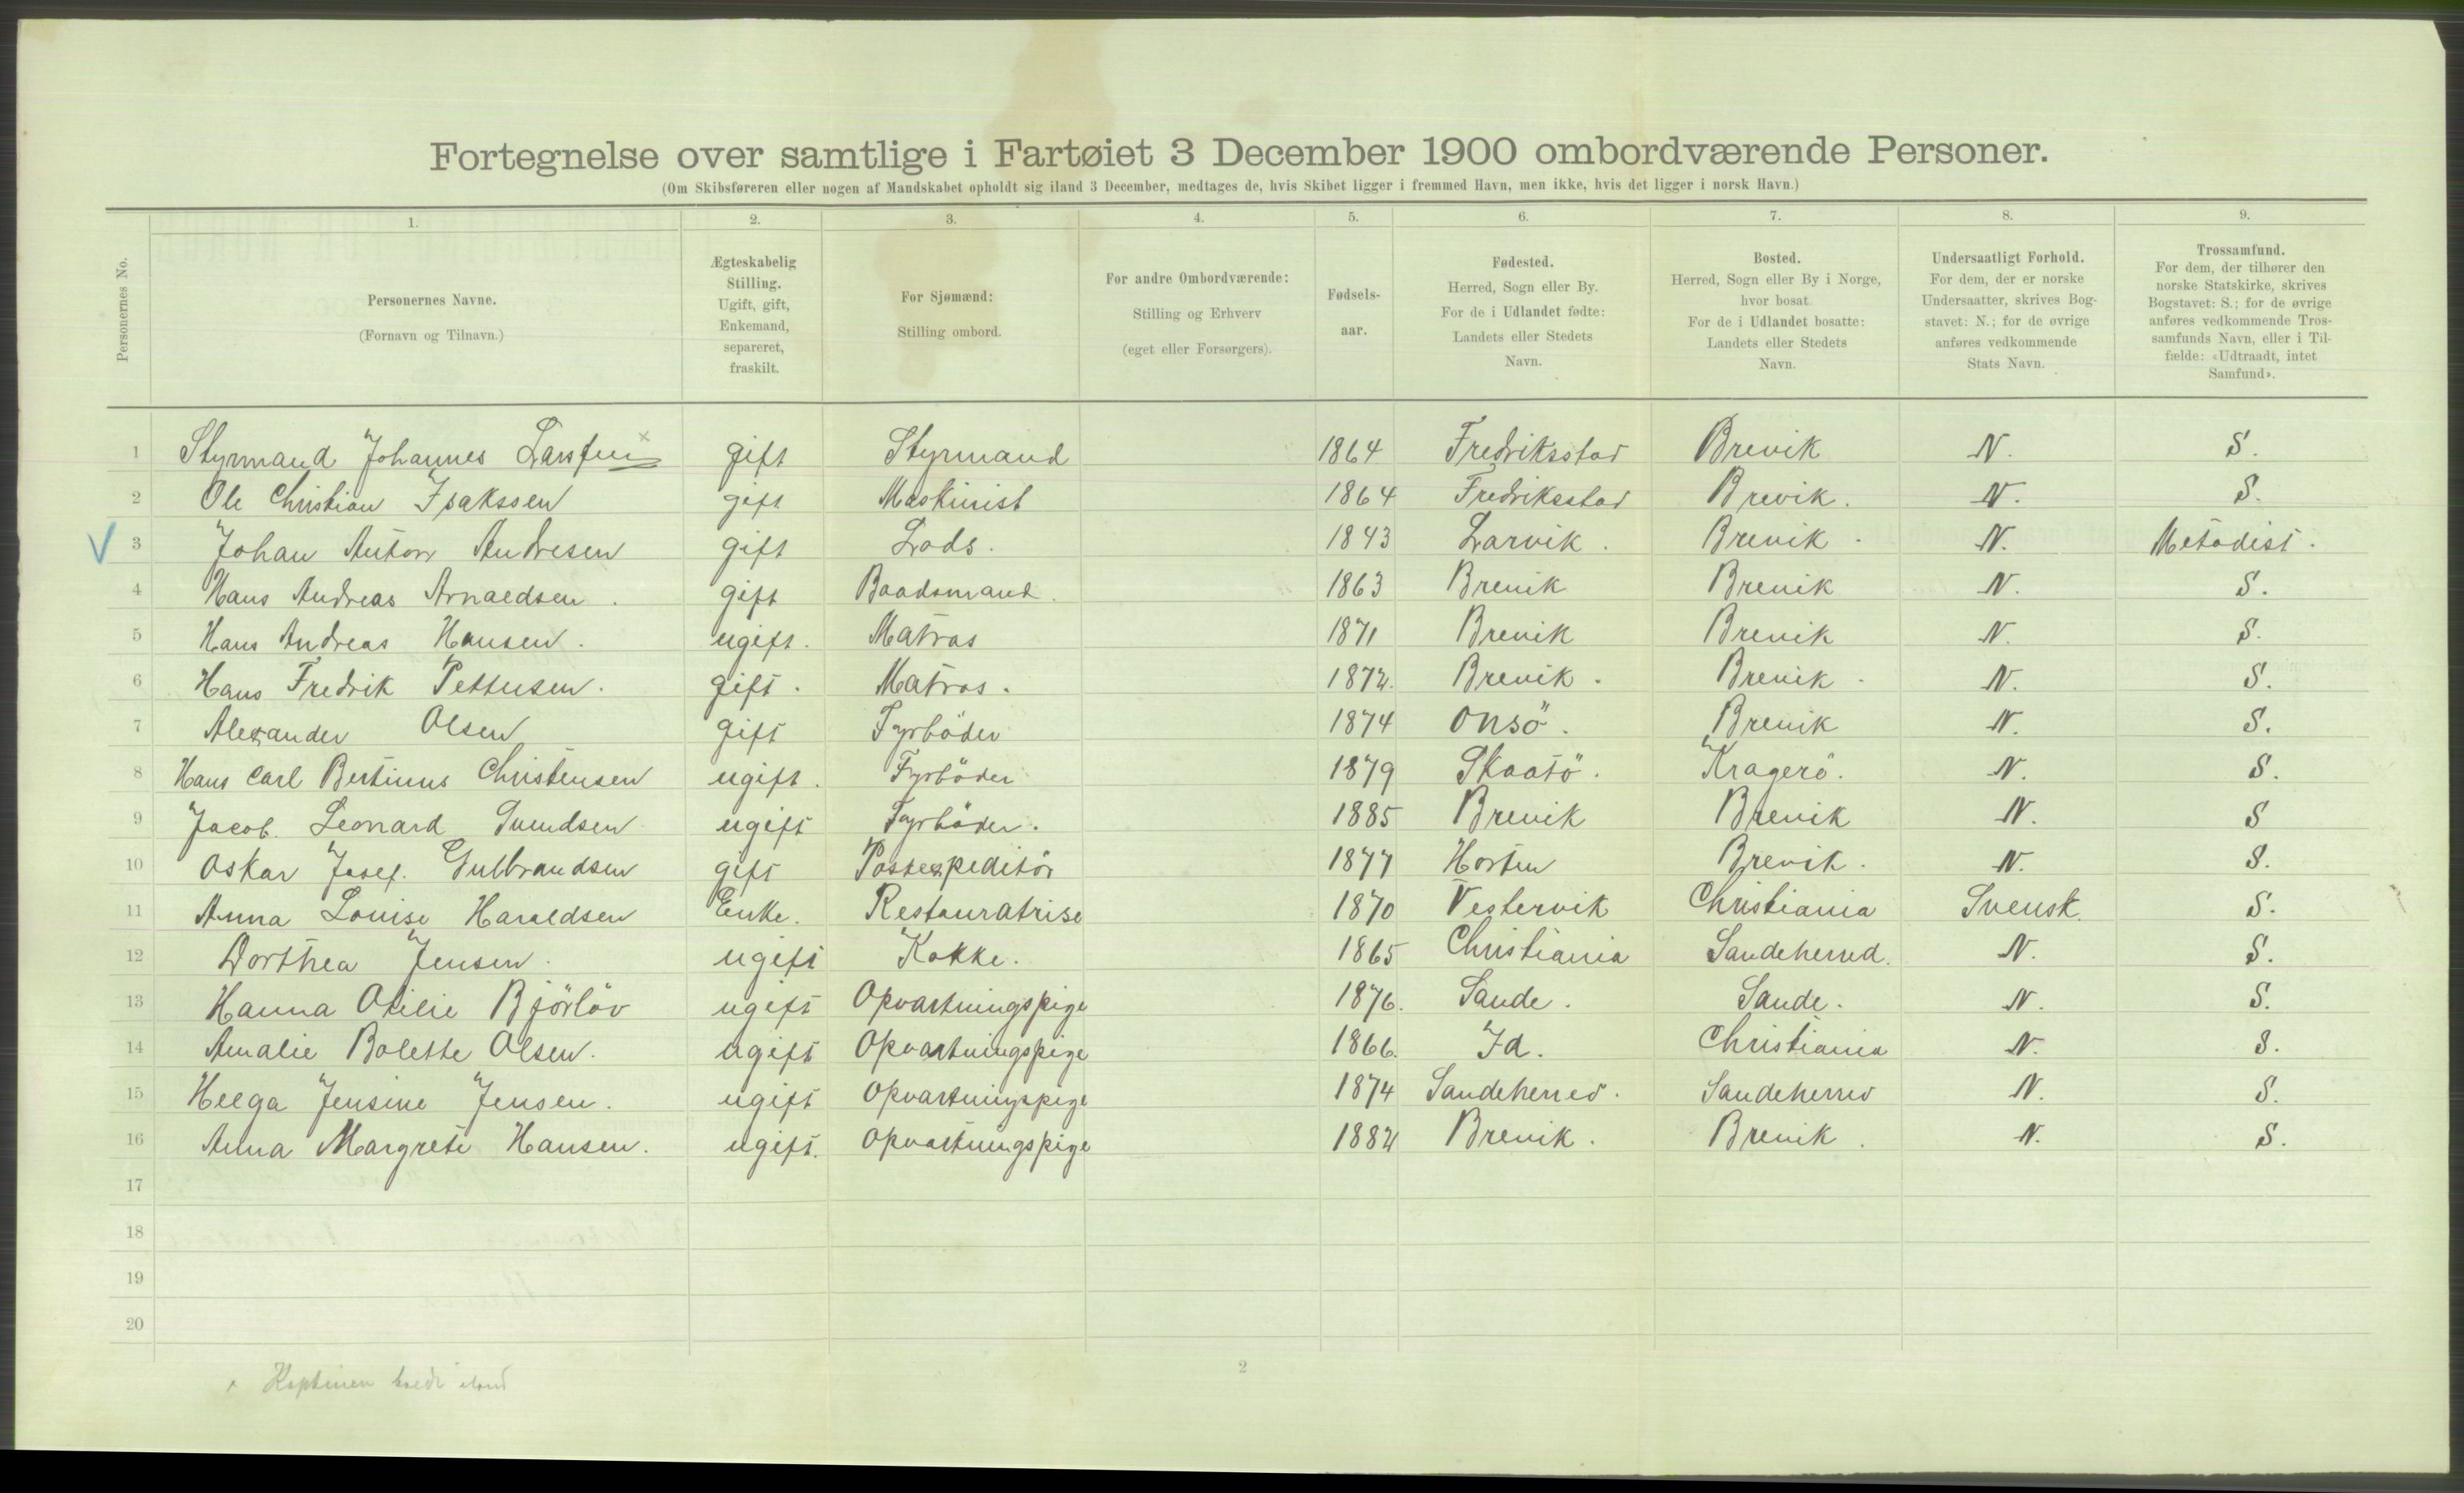 Fortegnelse over samtlige i Fartøiet 3 December 1900 ombordværende Personer.
(Om Skibsføreren eller nogen af Mandskabet opholdt sig iland 3 December, medtages de, hvis Skibet ligger i fremmed Havn, men ikke, hvis det ligger i norsk Havn.)
Personernes No.
1.
Personernes Navne.
(Fornavn og Tilnavn.)
2.
Ægteskabelig
Stilling.
Ugift, gift,
Enkemand,
separeret,
fraskilt.
3.
For Sjømænd:
Stilling ombord.
4.
For andre Ombordværende:
Stilling og Erhverv
(eget eller Forsørgers).
5.
Fødsels-
aar.
6.
Fødested.
Herred, Sogn eller By.
For de i Udlandet fødte:
Landets eller Stedets
Navn.
7.
Bosted.
Herred, Sogn eller By i Norge,
hvor bosat.
For de i Udlandet bosatte:
Landets eller Stedets
Navn.
8.
Undersaatligt Forhold.
For dem, der er norske
Undersaatter, skrives Bog-
stavet: N.; for de øvrige
anføres vedkommende
Stats Navn.
9.
Trossamfund.
For dem, der tilhører den
norske Statskirke, skrives
Bogstavet: S.; for de øvrige
anføres vedkommende Tros-
samfunds Navn, eller i Til-
fælde: «Udtraadt, intet
Samfund».
1 Styrmand Johannes Larssen x gift Styrmand 1864 Fredriksstad Brevik N. S.
2 Ole Christian Isakssen gift Maskinist 1864 Fredriksstad Brevik. N. S.
V 3 Johan Anton Andresen gift Lods. 1843 Larvik. Brevik. N. Metodist.
4 Hans Andreas Arnaldsen. gift Baadsmand. 1863 Brevik Brevik N. S.
5 Hans Andreas Hansen. ugift. Matros 1871 Brevik Brevik N. S.
6 Hans Fredrik Pettersen. gift. Matros. 1872. Brevik. Brevik. N. S.
7 Alexander Olsen gift Fyrböder 1874 Onsö. Brevik N. S.
8 Hans Carl Bertinus Christensen ugift. Fyrböder 1879 Skaatö. Kragerö. N. S.
9 Jacob. Leonard Svendsen ugift Fyrböder. 1885 Brevik Brevik N. S
10 Oskar Josef. Gulbrandsen gift Postexpeditör 1877 Horten Brevik. N. S.
11 Anna Louise Haraldsen Enke. Restauratrise 1870 Vestervik Christiania Svensk. S.
12 Dorthea Jensen. ugift Kokke. 1865 Christiania Sandeherred. N. S.
13 Hanna Otilie Björlöv ugift Opvartningspige 1876. Sande. Sande. N. S.
14 Amalie Bolette Olsen. ugift Opvartningspige 1866. Id. Christiania N. S.
15 Helga Jensine Jensen. ugift Opvartningspige 1874 Sandeherred. Sandeherred N. S.
16 Anna Margrete Hansen. ugift. Opvartningspige 1882 Brevik. Brevik. N. S.
17
18
19
20
x Kaptinen boede iland
2